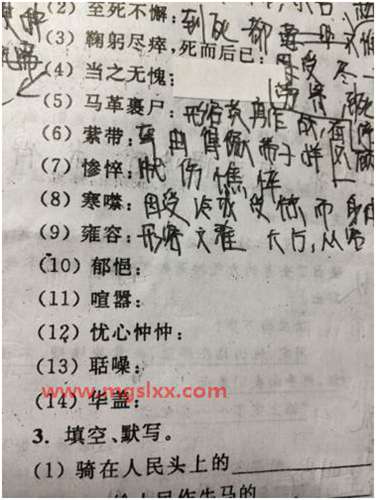 (2) 至死不懈：到死都
(3) 鞠躬尽瘁，死而后已：
(4) 当之无愧：
(5) 马革裹尸：形容英勇作战，
(6) 萦带：弯曲得像带子样
(7) 惨悴：忧伤憔悴
(8) 寒噤：因受冷或受惊而身体
(9) 雍容：形容文雅大方，从容
(10) 郁悒：
(11) 喧嚣：
(12) 忧心忡忡：
(13) 聒噪：
www.mgslxx.com
(14) 华盖：
3. 填空、默写。
(1) 骑在人民头上的
给人民作牛马的